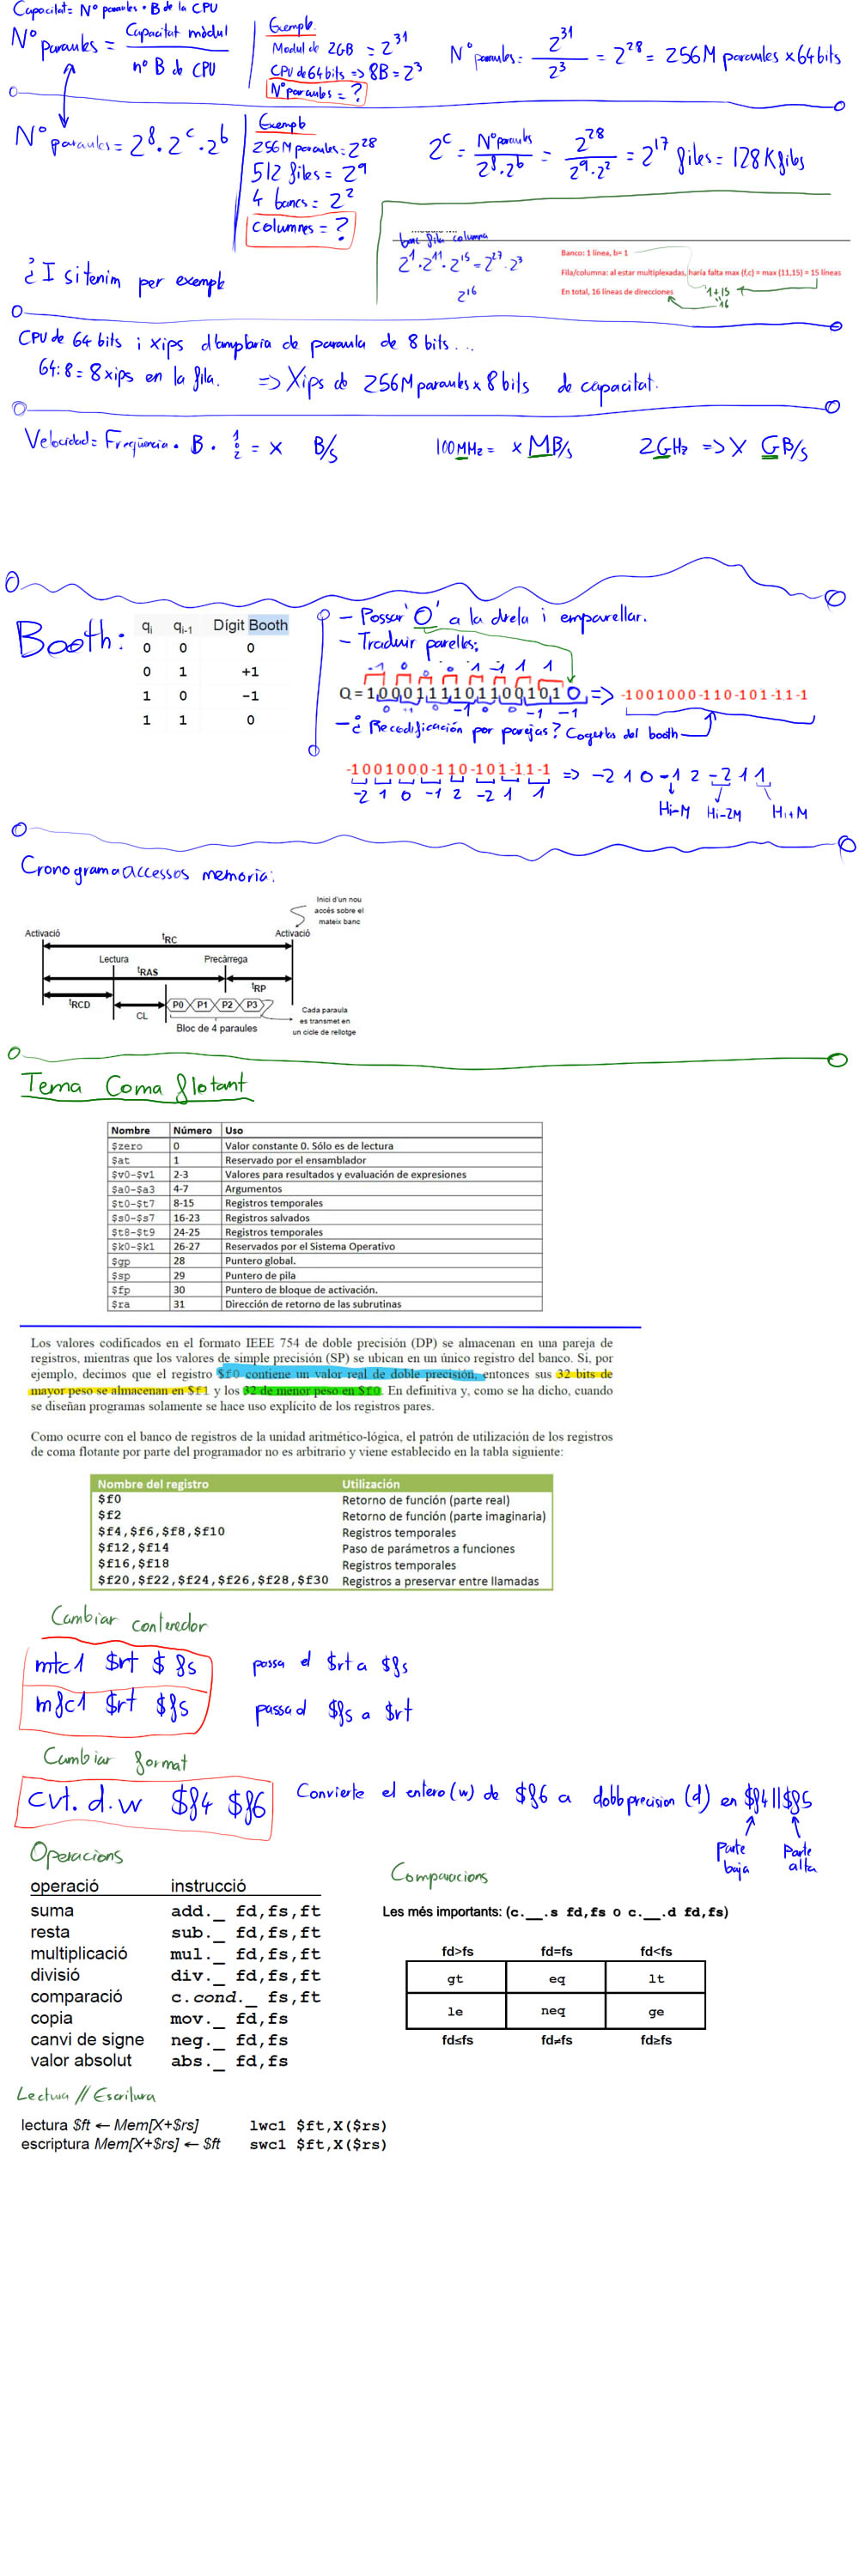 Capacitat = Nº paraules · B de la CPU
Nº paraules = Capacitat mòdul / nº B de CPU
Exemple.
Modul de 2GB = 2^31
CPU de 64 bits => 8B = 2^3
Nº paraules = ?
Nº paraules = 2^31 / 2^3 = 2^28 = 256M paraules x 64 bits
Nº paraules = 2^f · 2^c · 2^b
Exemple
256M paraules = 2^28
512 files = 2^9
4 bancs = 2^2
columnes = ?
2^c = Nº paraules / 2^f · 2^b = 2^28 / 2^9 · 2^2 = 2^17 files = 128K files
banc fila columna
2^1 · 2^11 · 2^15 = 2^27 · 2^3
2^16
Banco: 1 línea, b= 1
Fila/columna: al estar multiplexadas, haría falta max (f,c) = max (11,15) = 15 líneas
En total, 16 líneas de direcciones
1+15
16
¿I si tenim per exemple
CPU de 64 bits i xips d'amplaria de paraula de 8 bits...
64:8 = 8 xips en la fila. => Xips de 256M paraules x 8 bits de capacitat.
Velocidad = Freqüencia · B · 1 o 2 = x B/s
100MHz = x MB/s
2GHz => X GB/s
Booth:
qi qi-1 Dígit Booth
0 0 0
0 1 +1
1 0 -1
1 1 0
- Possar '0' a la dreta i emparellar.
- Traduir parelles;
-1 0 0 0 -1 -1 1 1
Q = 1000111101100101 0 => -1 0 0 1 0 0 0 -1 1 0 -1 0 1 -1 1 -1
0 1 0 -1 0 0 -1 -1
- ¿Recodificación por parejas? Cogerlos del booth
-1 0 0 1 0 0 0 -1 1 0 -1 0 1 -1 1 -1 => -2 1 0 -1 2 -2 1 1
-2 1 0 -1 2 -2 1 1
Hi-M Hi-2M Hi+M
Cronograma accessos memoria:
Inici d'un nou
accés sobre el
mateix banc
Activació tRC Activació
Lectura Precàrrega
tRAS
tRP
tRCD
CL
P0 P1 P2 P3
Bloc de 4 paraules
Cada paraula
es transmet en
un cicle de rellotge
Tema Coma flotant
Nombre Número Uso
$zero 0 Valor constante 0. Sólo es de lectura
$at 1 Reservado por el ensamblador
$v0-$v1 2-3 Valores para resultados y evaluación de expresiones
$a0-$a3 4-7 Argumentos
$t0-$t7 8-15 Registros temporales
$s0-$s7 16-23 Registros salvados
$t8-$t9 24-25 Registros temporales
$k0-$k1 26-27 Reservados por el Sistema Operativo
$gp 28 Puntero global.
$sp 29 Puntero de pila
$fp 30 Puntero de bloque de activación.
$ra 31 Dirección de retorno de las subrutinas
Los valores codificados en el formato IEEE 754 de doble precisión (DP) se almacenan en una pareja de
registros, mientras que los valores de simple precisión (SP) se ubican en un único registro del banco. Si, por
ejemplo, decimos que el registro $f0 contiene un valor real de doble precisión, entonces sus 32 bits de
mayor peso se almacenan en $f1 y los 32 de menor peso en $f0. En definitiva y, como se ha dicho, cuando
se diseñan programas solamente se hace uso explícito de los registros pares.
Como ocurre con el banco de registros de la unidad aritmético-lógica, el patrón de utilización de los registros
de coma flotante por parte del programador no es arbitrario y viene establecido en la tabla siguiente:
Nombre del registro Utilización
$f0 Retorno de función (parte real)
$f2 Retorno de función (parte imaginaria)
$f4,$f6,$f8,$f10 Registros temporales
$f12,$f14 Paso de parámetros a funciones
$f16,$f18 Registros temporales
$f20,$f22,$f24,$f26,$f28,$f30 Registros a preservar entre llamadas
Cambiar contenedor
mtc1 $rt $fs possa el $rt a $fs
mfc1 $rt $fs passa el $fs a $rt
Cambiar format
cvt.d.w $f4 $f6 Convierte el entero (w) de $f6 a doble precision (d) en $f4||$f5
Parte baja Parte alta
Operacions
operació instrucció
suma add._ fd,fs,ft
resta sub._ fd,fs,ft
multiplicació mul._ fd,fs,ft
divisió div._ fd,fs,ft
comparació c.cond._ fs,ft
copia mov._ fd,fs
canvi de signe neg._ fd,fs
valor absolut abs._ fd,fs
Comparacions
Les més importants: (c.__.s fd,fs o c.__.d fd,fs)
fd>fs fd=fs fd<fs
gt eq lt
le neq ge
fd≤fs fd≠fs fd≥fs
Lectura // Escritura
lectura $ft ← Mem[X+$rs] lwc1 $ft,X($rs)
escriptura Mem[X+$rs] ← $ft swc1 $ft,X($rs)